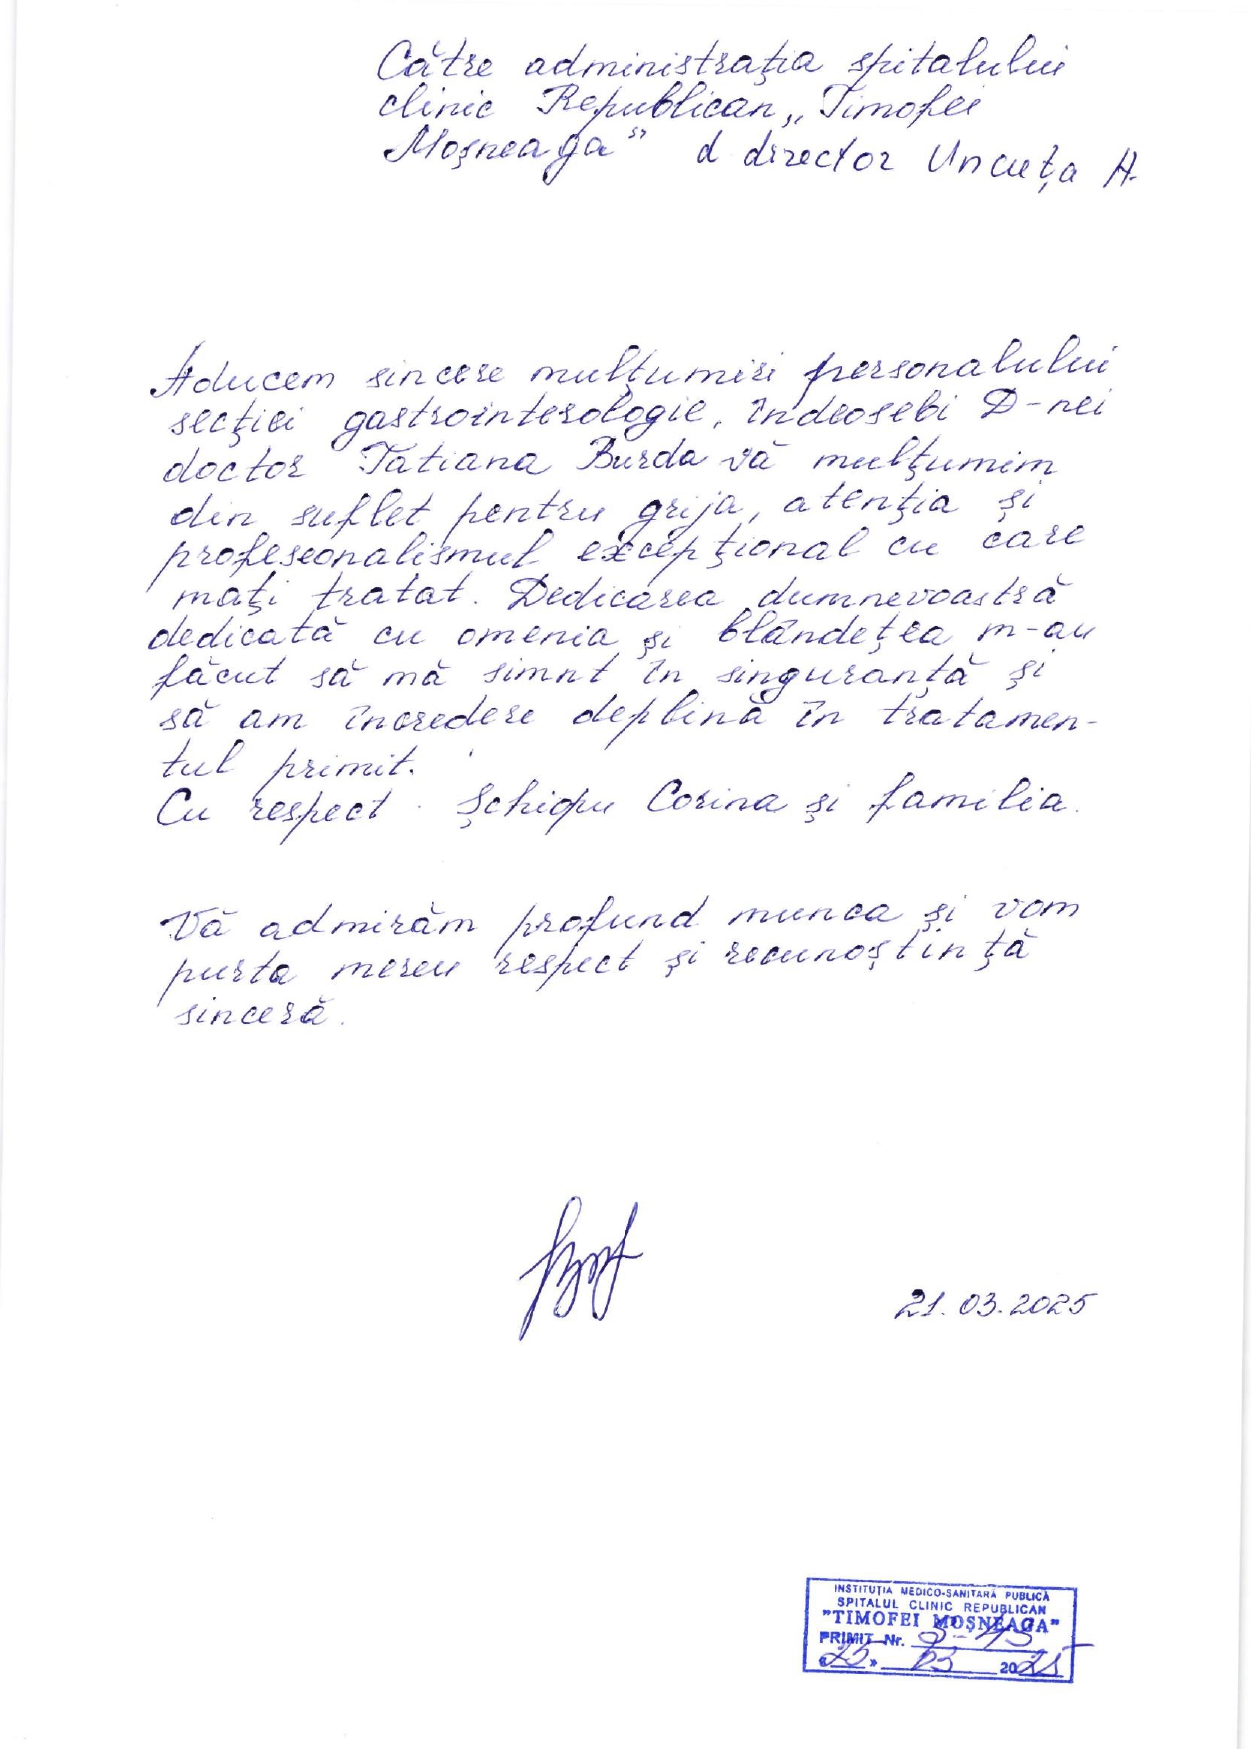 Către administrația spitalului
clinic Republican „Timofei
Moșneaga” d director Uncuța A.
Aducem sincere mulțumiri personalului
secției gastrointerologie, îndeosebi D-nei
doctor Tatiana Burda vă mulțumim
din suflet pentru grija, atenția și
profeseonalismul excepțional cu care
mați tratat. Dedicarea dumnevoastră
dedicată cu omenia și blândețea m-au
făcut să mă simnt în singuranță și
să am încredere deplină în tratamen-
tul primit.
Cu respect Șchiopu Corina și familia.
Vă admirăm profund munca și vom
purta mereu respect și recunoștință
sinceră.
21.03.2025
INSTITUȚIA MEDICO-SANITARĂ PUBLICĂ
SPITALUL CLINIC REPUBLICAN
"TIMOFEI MOȘNEAGA"
PRIMIT Nr.
«25» 03 2025